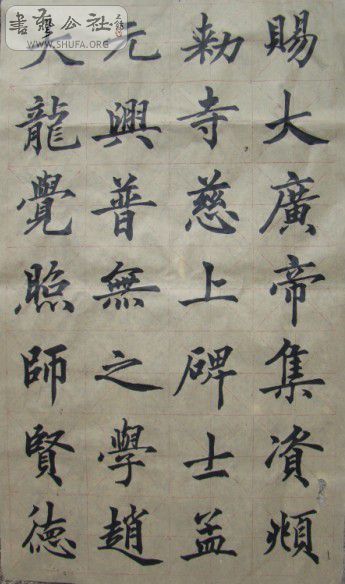 大元勅賜
龍興寺大
覺普慈廣
照無上帝
師之碑集
賢學士資
德趙孟頫
書藝公社
WWW.SHUFA.ORG